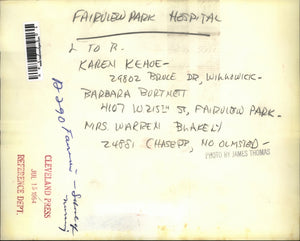 FAIRVIEW PARK HOSPITAL
L TO R.
KAREN KEHOE -
29802 BRUCE DR, WILLOWICK -
BARBARA BURTNETT
4107 W 215TH ST, FAIRVIEW PARK.
MRS. WARREN BLAKELY
24881 CHASE DR, NO OLMSTED -
PHOTO BY JAMES THOMAS
CLEVELAND PRESS
JUL 1964
REFERENCE DEPT.